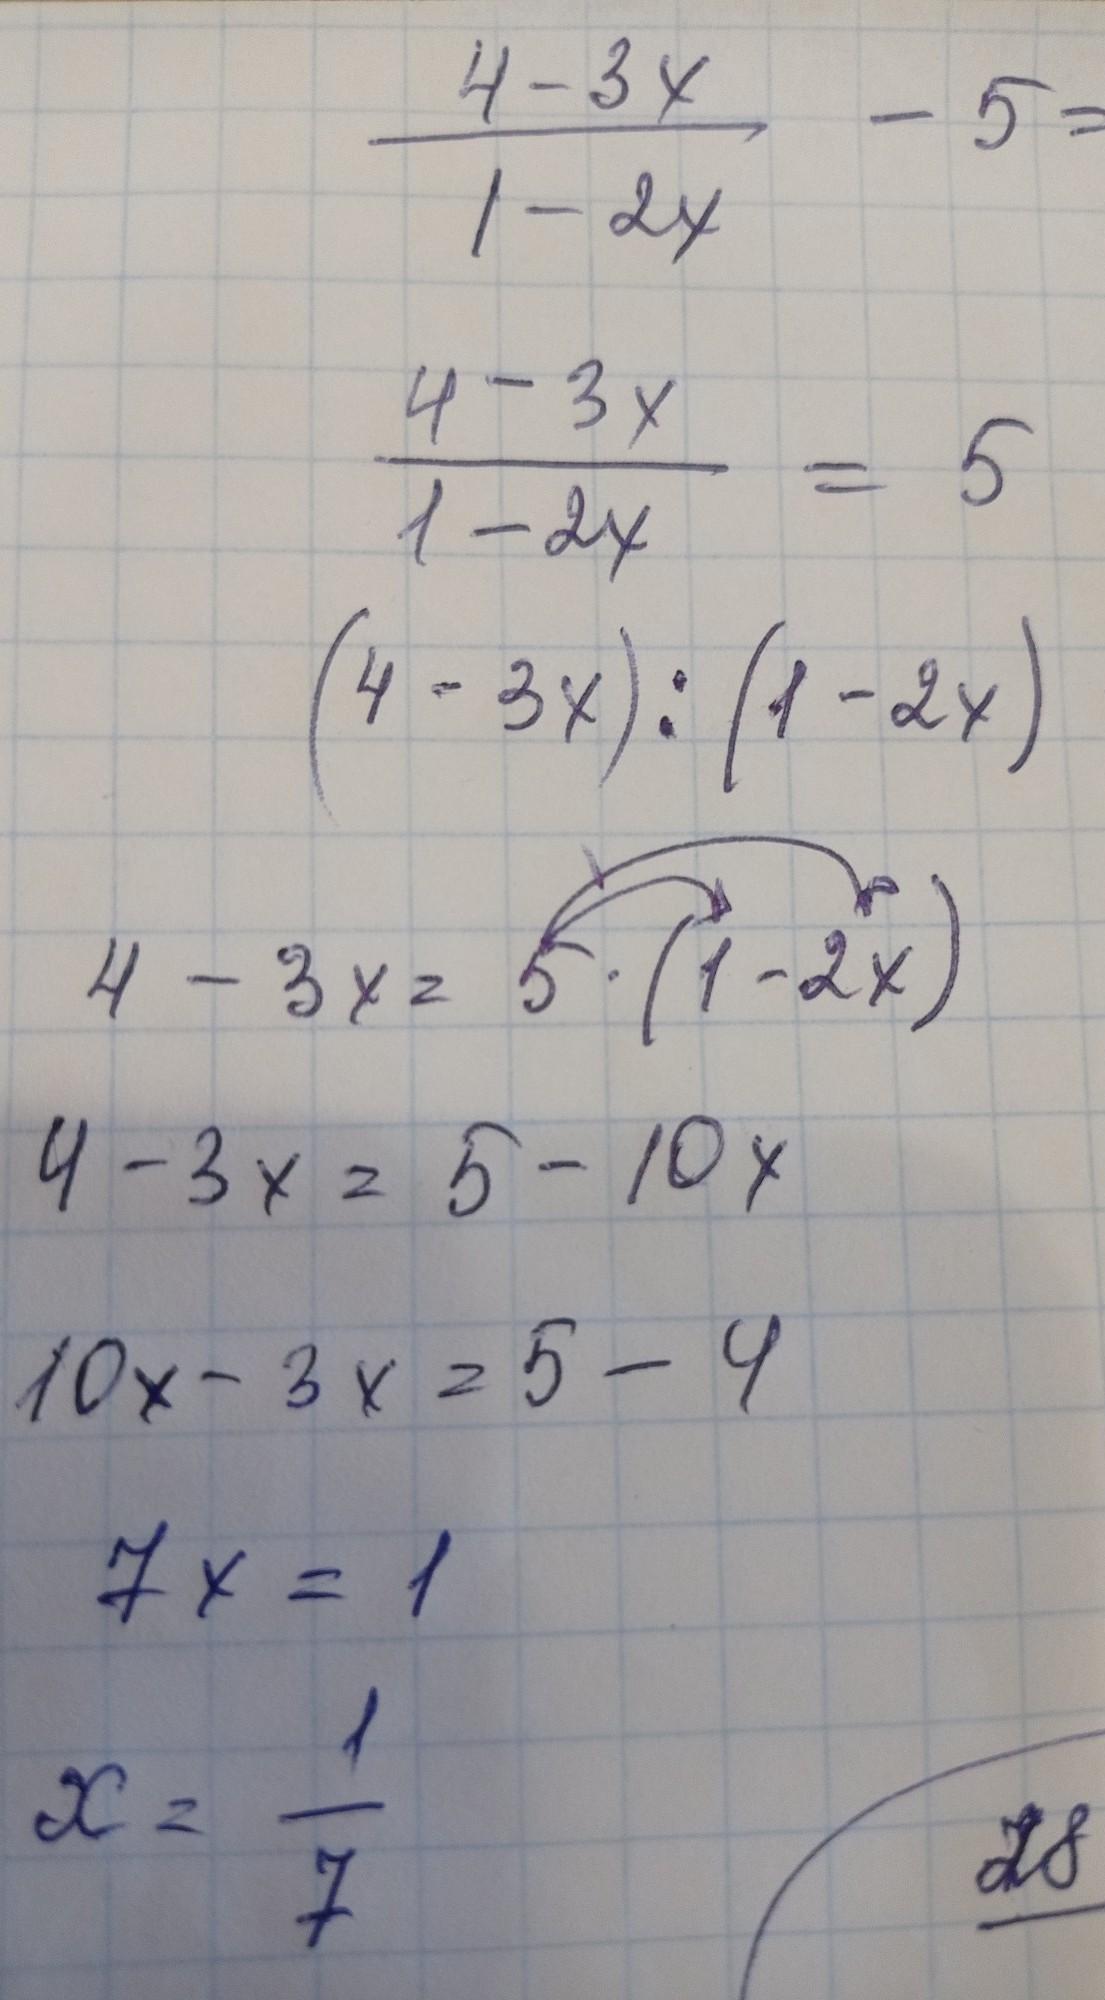 4 - 3x
1 - 2x
- 5 =
4 - 3x
1 - 2x
= 5
(4 - 3x) : (1 - 2x)
4 - 3x = 5 · (1 - 2x)
4 - 3x = 5 - 10x
10x - 3x = 5 - 4
7x = 1
x = 1
7
28